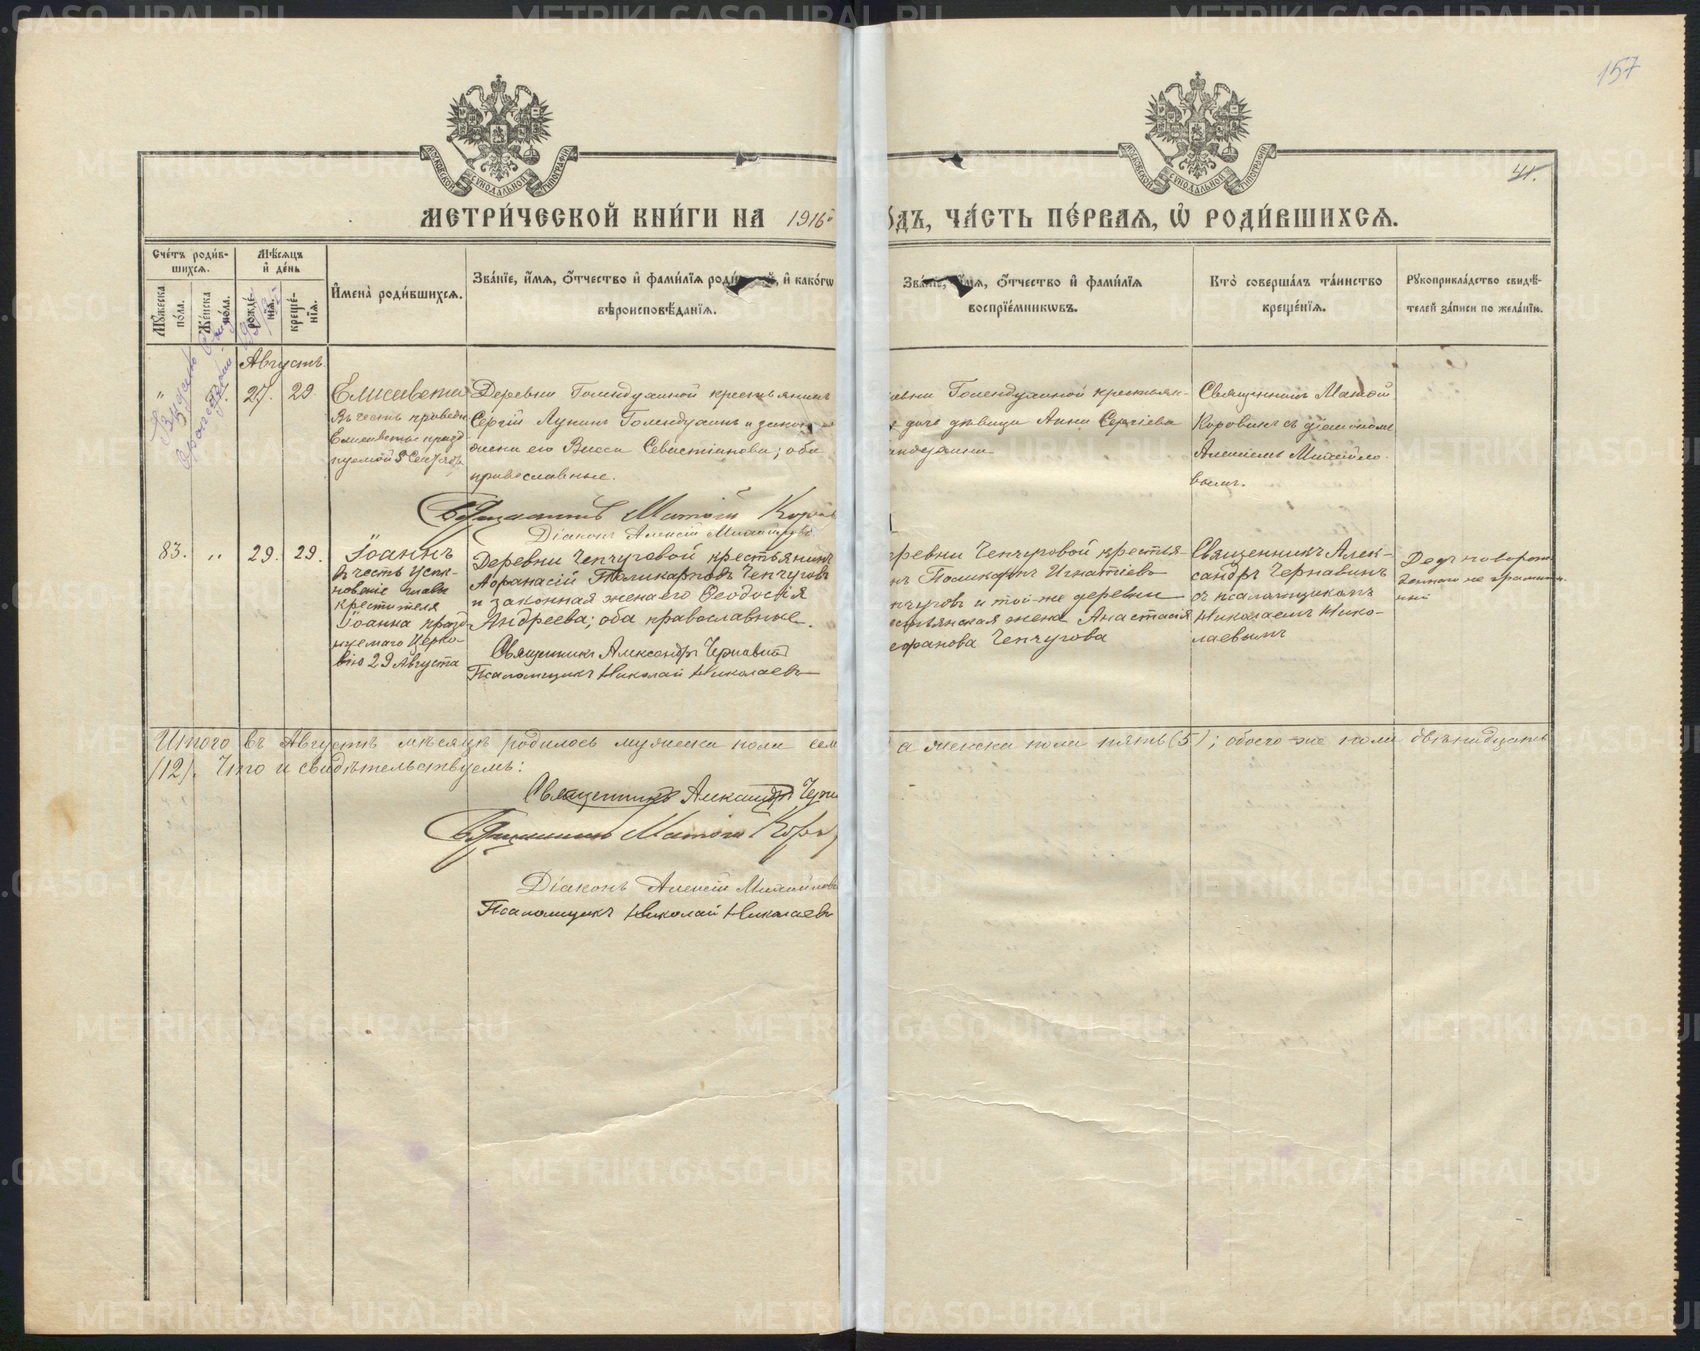 157
41.
МЕТРИ́ЧЕСКОЙ КНИ́ГИ НА 1916й
ОДЪ, ЧА́СТЬ ПЕ́РВАЯ, Ѡ҆ РОДИ́ВШИХСЯ.
Сче́тъ роди́в-
шихся.
Мꙋ́жеска по́ла.
Же́нска по́ла.
Мѣ́сяцъ
и҆ де́нь
рожде́-
нія.
креще́-
нія.
И҆мена̀ роди́вшихся.
Зва́ніе, и҆́мя, о҆́тчество и҆ фами́лія роди́ й, и҆ како́гѡ
вѣроисповѣ́данія.
Зва́ніе, и҆́мя, о҆́тчество и҆ фами́лія
воспрїе́мникѡвъ.
Кто̀ соверша́лъ та́инство
креще́нія.
Рꙋкоприкла́дство свидѣ́-
телей за́писи по жела́нію.
Августъ
"
27.
29
Елисавета
Въ честь праведн
Елисаветы празд
нуемой 5 Сентяб.
Деревни Голендухиной крестьянинъ
Сергій Лукинъ Голендухинъ и закон
жена его Васса Севастіанова; оба
православные.
Священникъ Матѳій Коров
Діаконъ Алексій Михайлов
вни Голендухиной крестьян-
дочь дѣвица Анна Сергіева
ендухина
Священникъ Матѳій
Коровинъ съ діакономъ
Алексіемъ Михайло-
вымъ.
83.
"
29.
29.
Іоаннъ
въ честь Усѣк-
новеніе главы
крестителя
Іоанна празд
нуемаго Церко-
вію 29 Августа
Деревни Чепчуговой крестьянинъ
Аѳанасій Поликарповъ Чепчуговъ
и законная жена его Ѳеодосія
Андреева; оба православные.
Священникъ Александръ Чернавинъ
Псаломщикъ Николай Николаевъ
еревни Чепчуговой крестья-
нъ Поликарпъ Игнатіевъ
пчуговъ и той-же деревни
естьянская жена Анастасія
ефанова Чепчугова
Священникъ Алек-
сандръ Чернавинъ
съ псаломщикомъ
Николаемъ Нико-
лаевымъ
Итого въ Августѣ мѣсяцѣ родилось мужеска пола сем а женска пола пять (5); обоего же пола двѣнадцать
(12). Что и свидѣтельствуемъ:
Священникъ Александръ Черн
Священникъ Матѳій Коров
Діаконъ Алексій Михайлов
Псаломщикъ Николай Николаевъ
METRIKI.GASO-URAL.RU